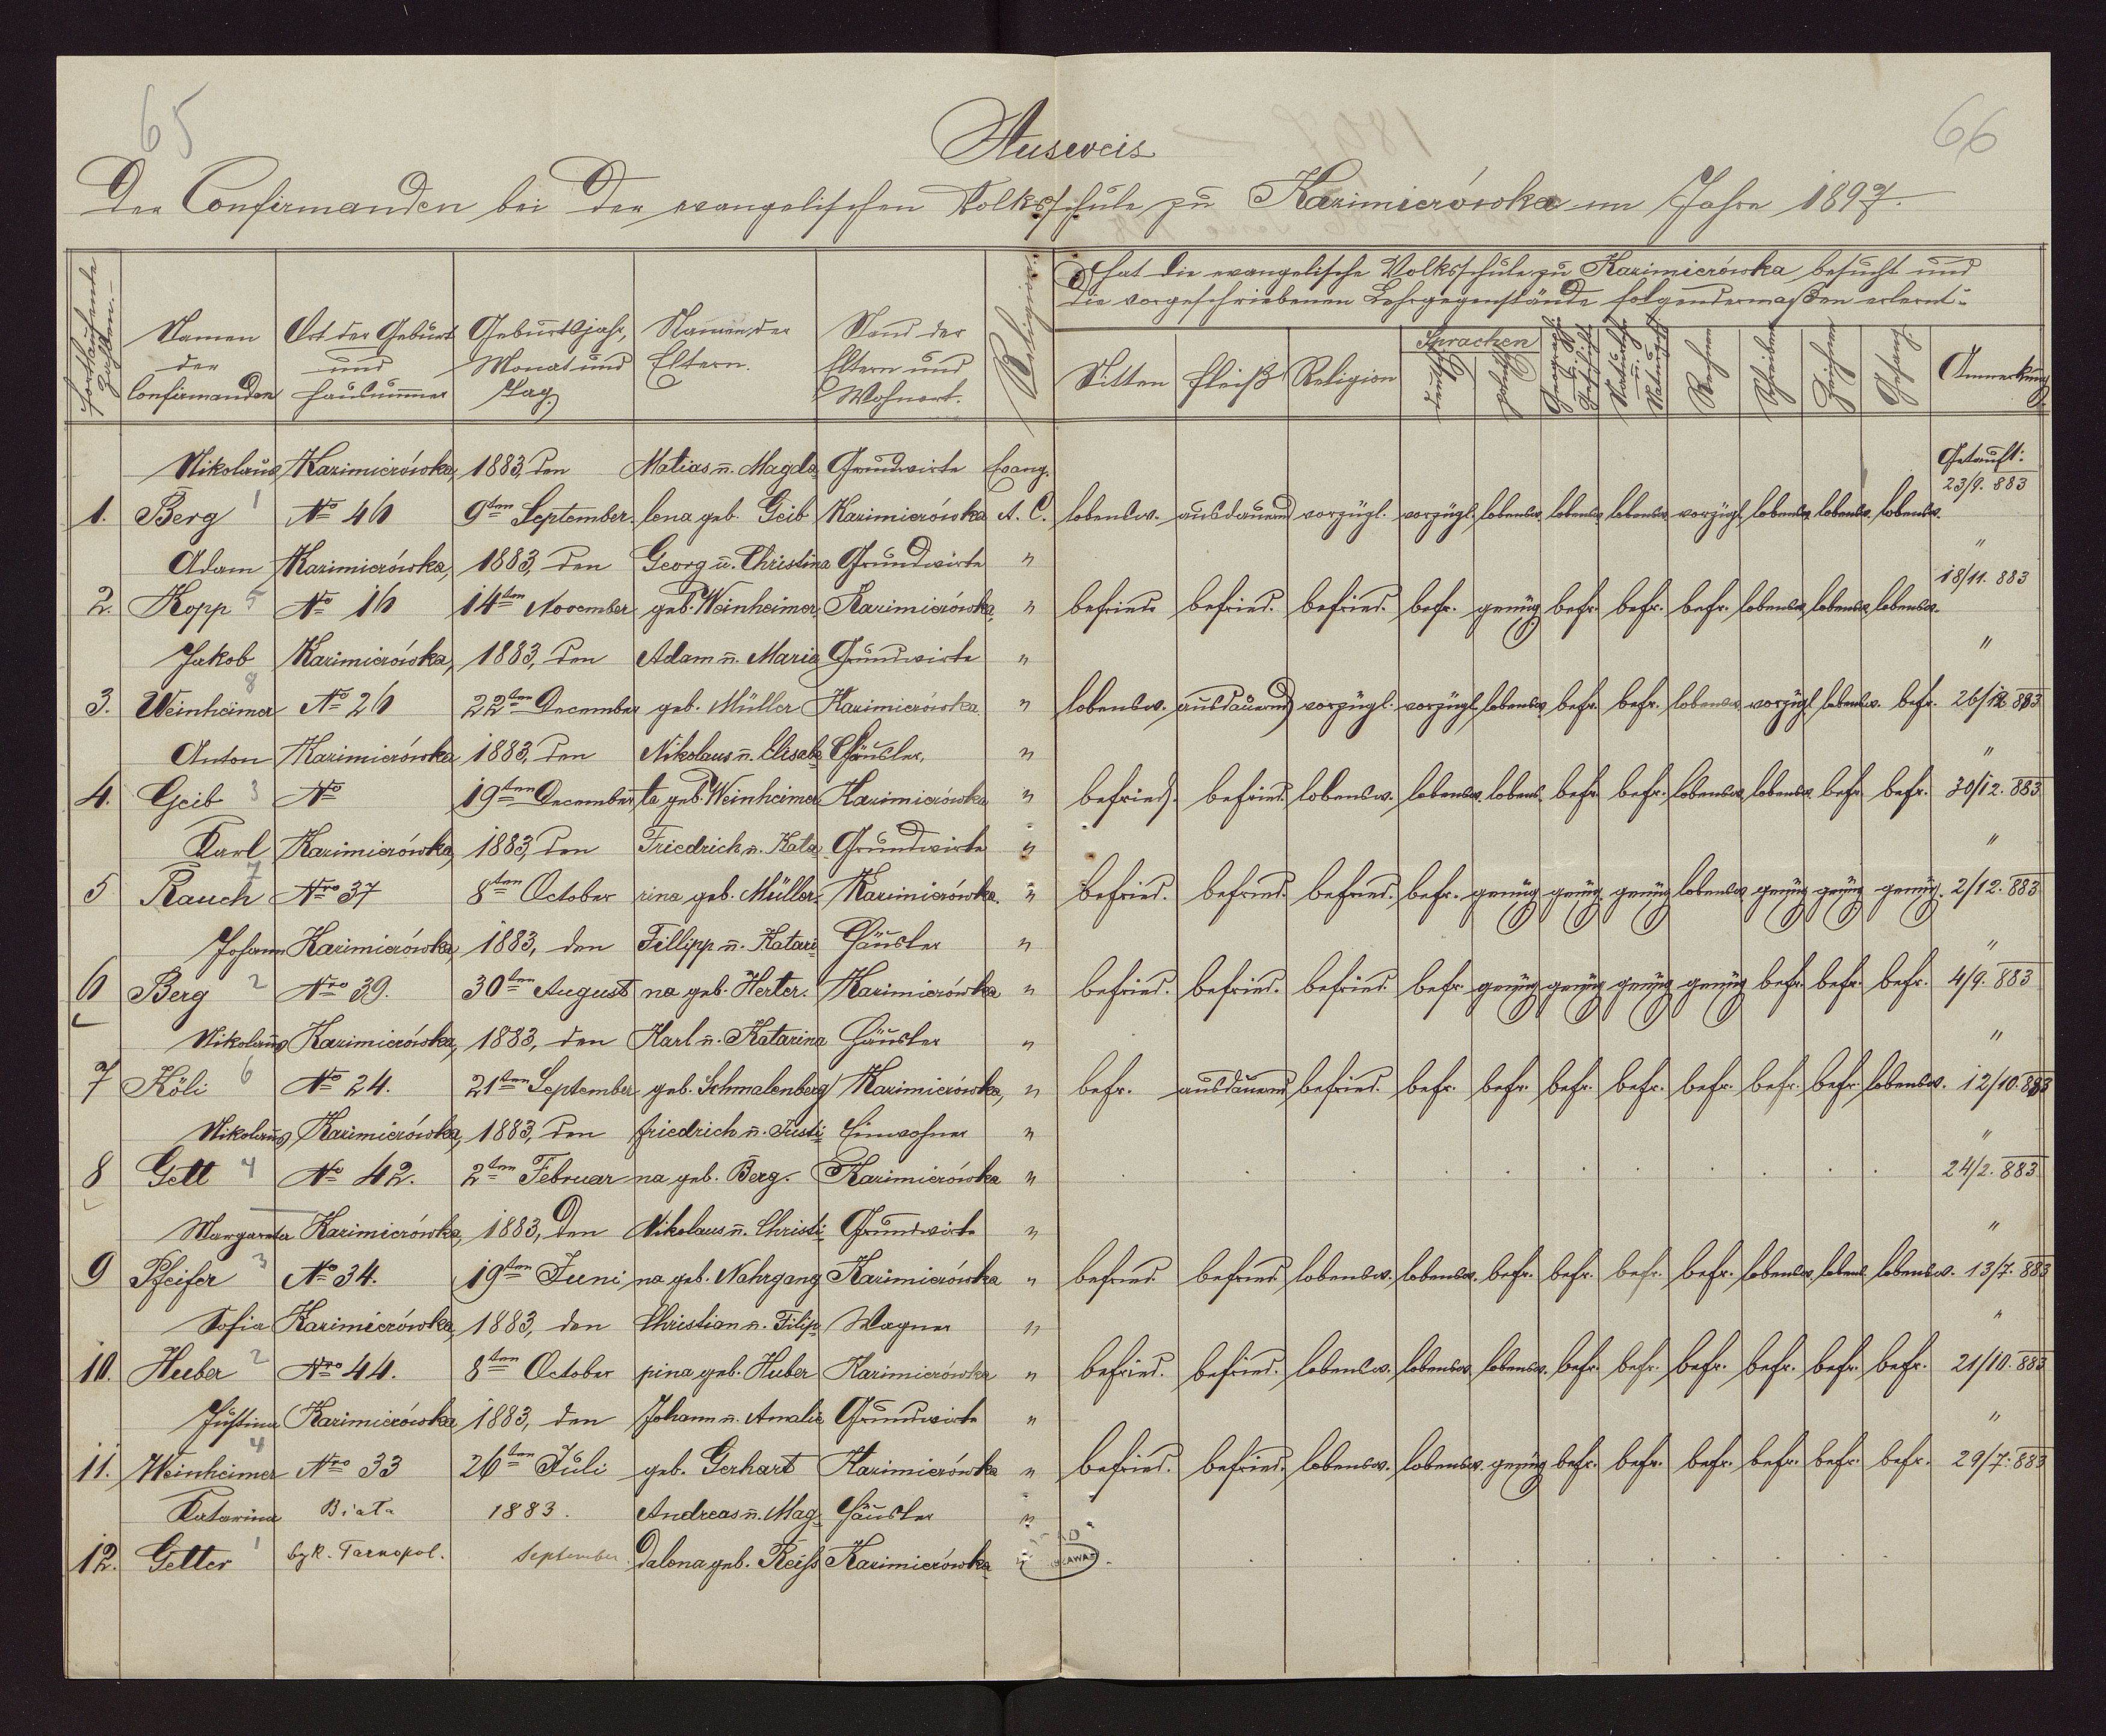 65
66
Ausweis
Der Confirmanden bei der evangelischen Volksschule zu Kazimierówka im Jahre 1897.
Fortlaufende Zahlen.-
Namen der Confirmanden
Ort der Geburt und Hausnummer
Geburtsjahr, Monat und Tag.
Namen der Eltern.
Stand der Eltern und Wohnort.
Religion.
Er hat die evangelische Volksschule zu Kazimierówka besucht und
die vorgeschriebenen Lehrgegenstände folgendermaßen erlernt:
Sitten
Fleiß
Religion
Sprachen
deutsch
polnisch
Geographie u. Geschichte
Naturlehre u. Naturgesch.
Rechnen
Schreiben
Zeichnen
Gesang
Anmerkung
Nikolaus Kazimierówka, 1883, den Matias u. Magda Grundwirte Evang. Getauft:
1. Berg 1 No 46 9ten September. lena geb. Geib Kazimierówka A. C. lobensw. ausdauernd vorzügl. vorzügl. lobensw. lobensw. lobensw. vorzügl. lobensw. lobensw. lobensw. 23/9. 883
Adam Kazimierówka, 1883, den Georg u. Christina Grundwirte " "
2. Kopp 5 No 16 14ten November geb. Weinheimer. Kazimierówka, " befried. befried. befried. befr. genüg befr. befr. befr. lobensw. lobensw. lobensw. 18/11. 883
Jakob Kazimierówka, 1883, den Adam u. Maria Grundwirte " "
3. Weinheimer 8 No 26 22ten December geb. Müller Kazimierówka. " lobensw. ausdauernd vorzügl. vorzügl. lobensw. befr. befr. lobensw. vorzügl. lobensw. befr. 26/12. 883
Anton Kazimierówka 1883, den Nikolaus u. Elisabe Häusler, " "
4. Geib 3 No 19ten December ta geb. Weinheimer Kazimierówka " befried. befried. lobensw. lobensw. lobens. befr. befr. lobensw. lobensw. befr. befr. 30/12. 883
Karl Kazimierówka, 1883, den Friedrich u. Kata Grundwirte " "
5 Rauch 7 Nro 37 8ten October rina geb. Müller. Kazimierówka. " befried. befried. befried. befr. genüg genüg. genüg lobensw. genüg genüg genüg. 2/12. 883
Johann Kazimierówka, 1883, den Fillipp u. Katari- Häusler " "
6 Berg 2 Nro 39. 30ten August na geb. Herter. Kazimierówka " befried. befried. befried. befr. genüg genüg genüg genüg befr. befr. befr. 4/9. 883
Nikolaus Kazimierówka, 1883, den Karl u. Katarina Häusler " "
7 Köli 6 No 24. 21ten September geb. Schmalenberg Kazimierówka, " befr. ausdauernd befried. befr. befr. befr. befr. befr. befr. befr. lobensw. 12/10. 883
Nikolaus Kazimierówka, 1883, den Friedrich u. Justi- Einwohner " "
8 Gett 4 No 42. 2ten Februar na geb. Berg. Kazimierówka " 24/2. 883.
Margareta Kazimierówka, 1883, den Nikolaus u. Christi- Grundwirte " "
9 Pfeifer 3 No 34. 19ten Juni na geb. Nahrgang Kazimierówka " befried. befried. lobensw. lobensw. befr. befr. befr. befr. lobensw. lobens. lobensw. 13/7. 883
Sofia Kazimierówka, 1883, den Christian u. Filip- Wagner " "
10. Huber 2 Nro 44. 8ten October pina geb. Huber Kazimierówka " befried. befried. lobensw. lobensw. lobensw. befr. befr. befr. befr. befr. befr. 21/10. 883
Justina Kazimierówka 1883, den Johann u. Amalie Grundwirte " "
11. Weinheimer 4 Nro 33 26ten Juli geb. Gerhart Kazimierówka " befried. befried. lobensw. lobensw. genüg befr. befr. befr. befr. befr. befr. 29/7. 883
Katarina Biała 1883. Andreas u. Mag- Häusler "
12. Getter 1 bzk. Tarnopol. September. dalena geb. Reiss Kazimierówka "